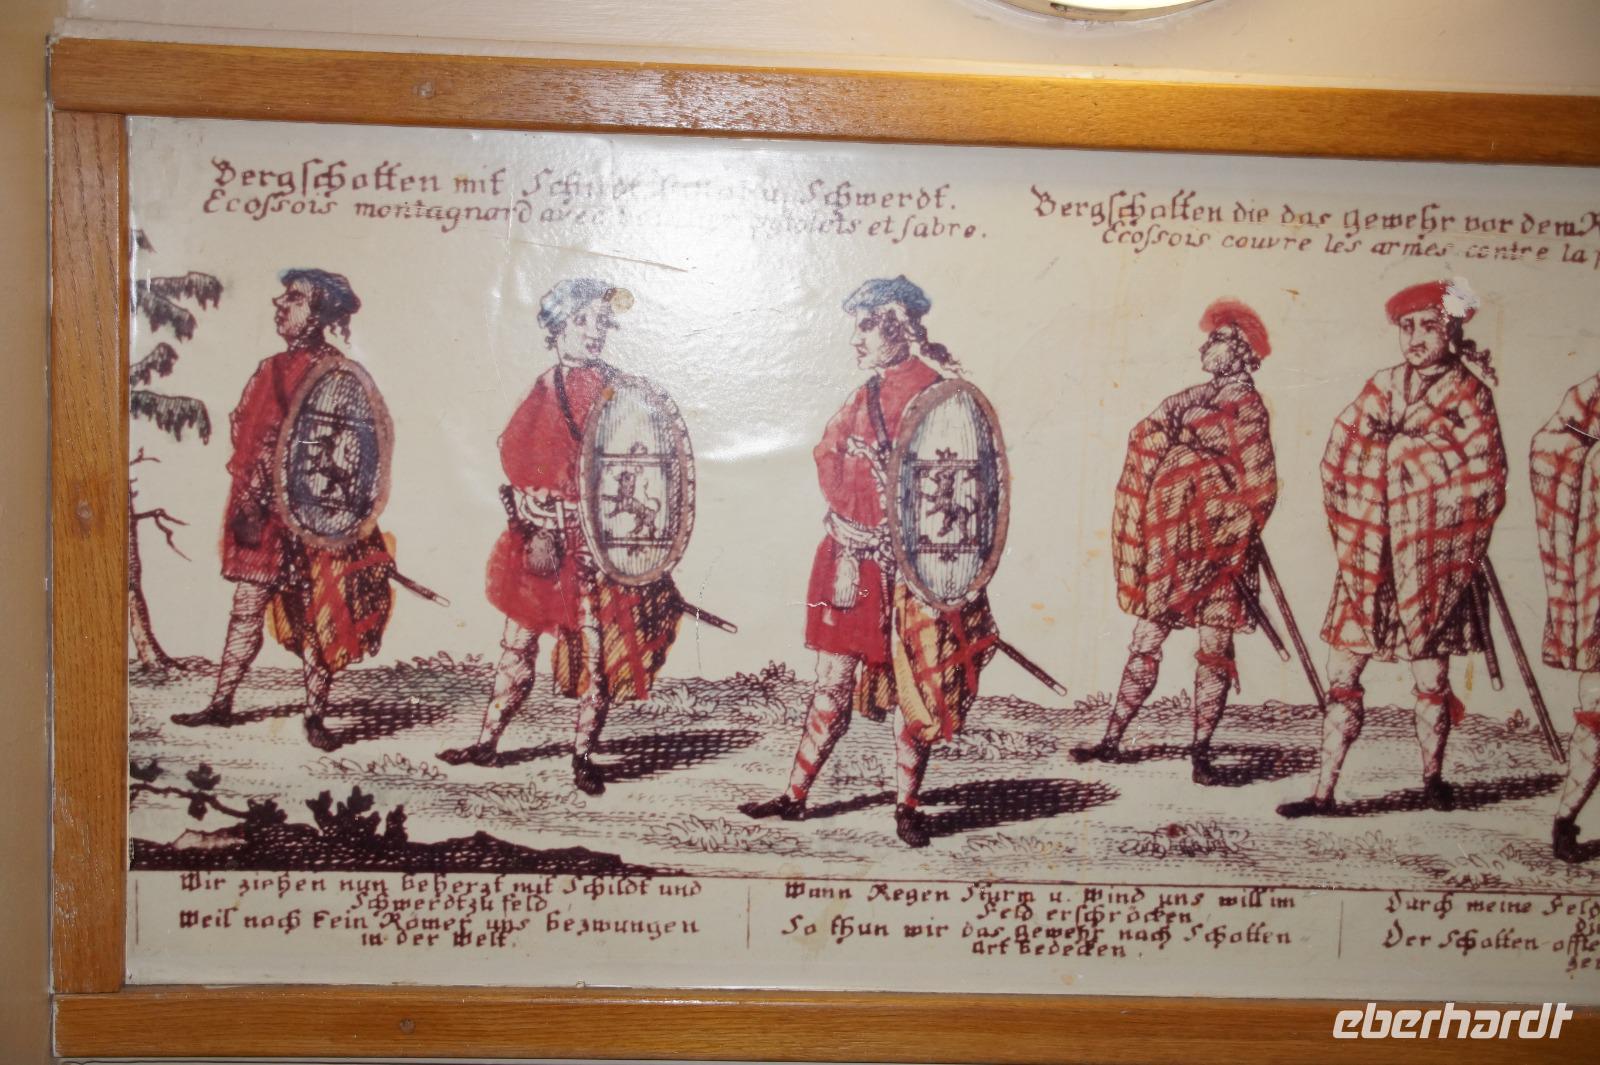 Bergschotten mit Schildt Schwerdt.
Ecossois montagnard avec pistolets et sabre.
Bergschotten die das gewehr vor dem
Ecossois couvre les armes contre la
Wir ziehen nun beherzt mit Schildt und
Schwerdt zu feld
Weil noch kein Römer uns bezwungen
in der Welt.
Wann Regen Sturm u. Wind uns will im
Feld erschröcken
So thun wir das gewehr nach Schotten
art bedecken
Durch meine Feld
Der Schotten
eberhardt